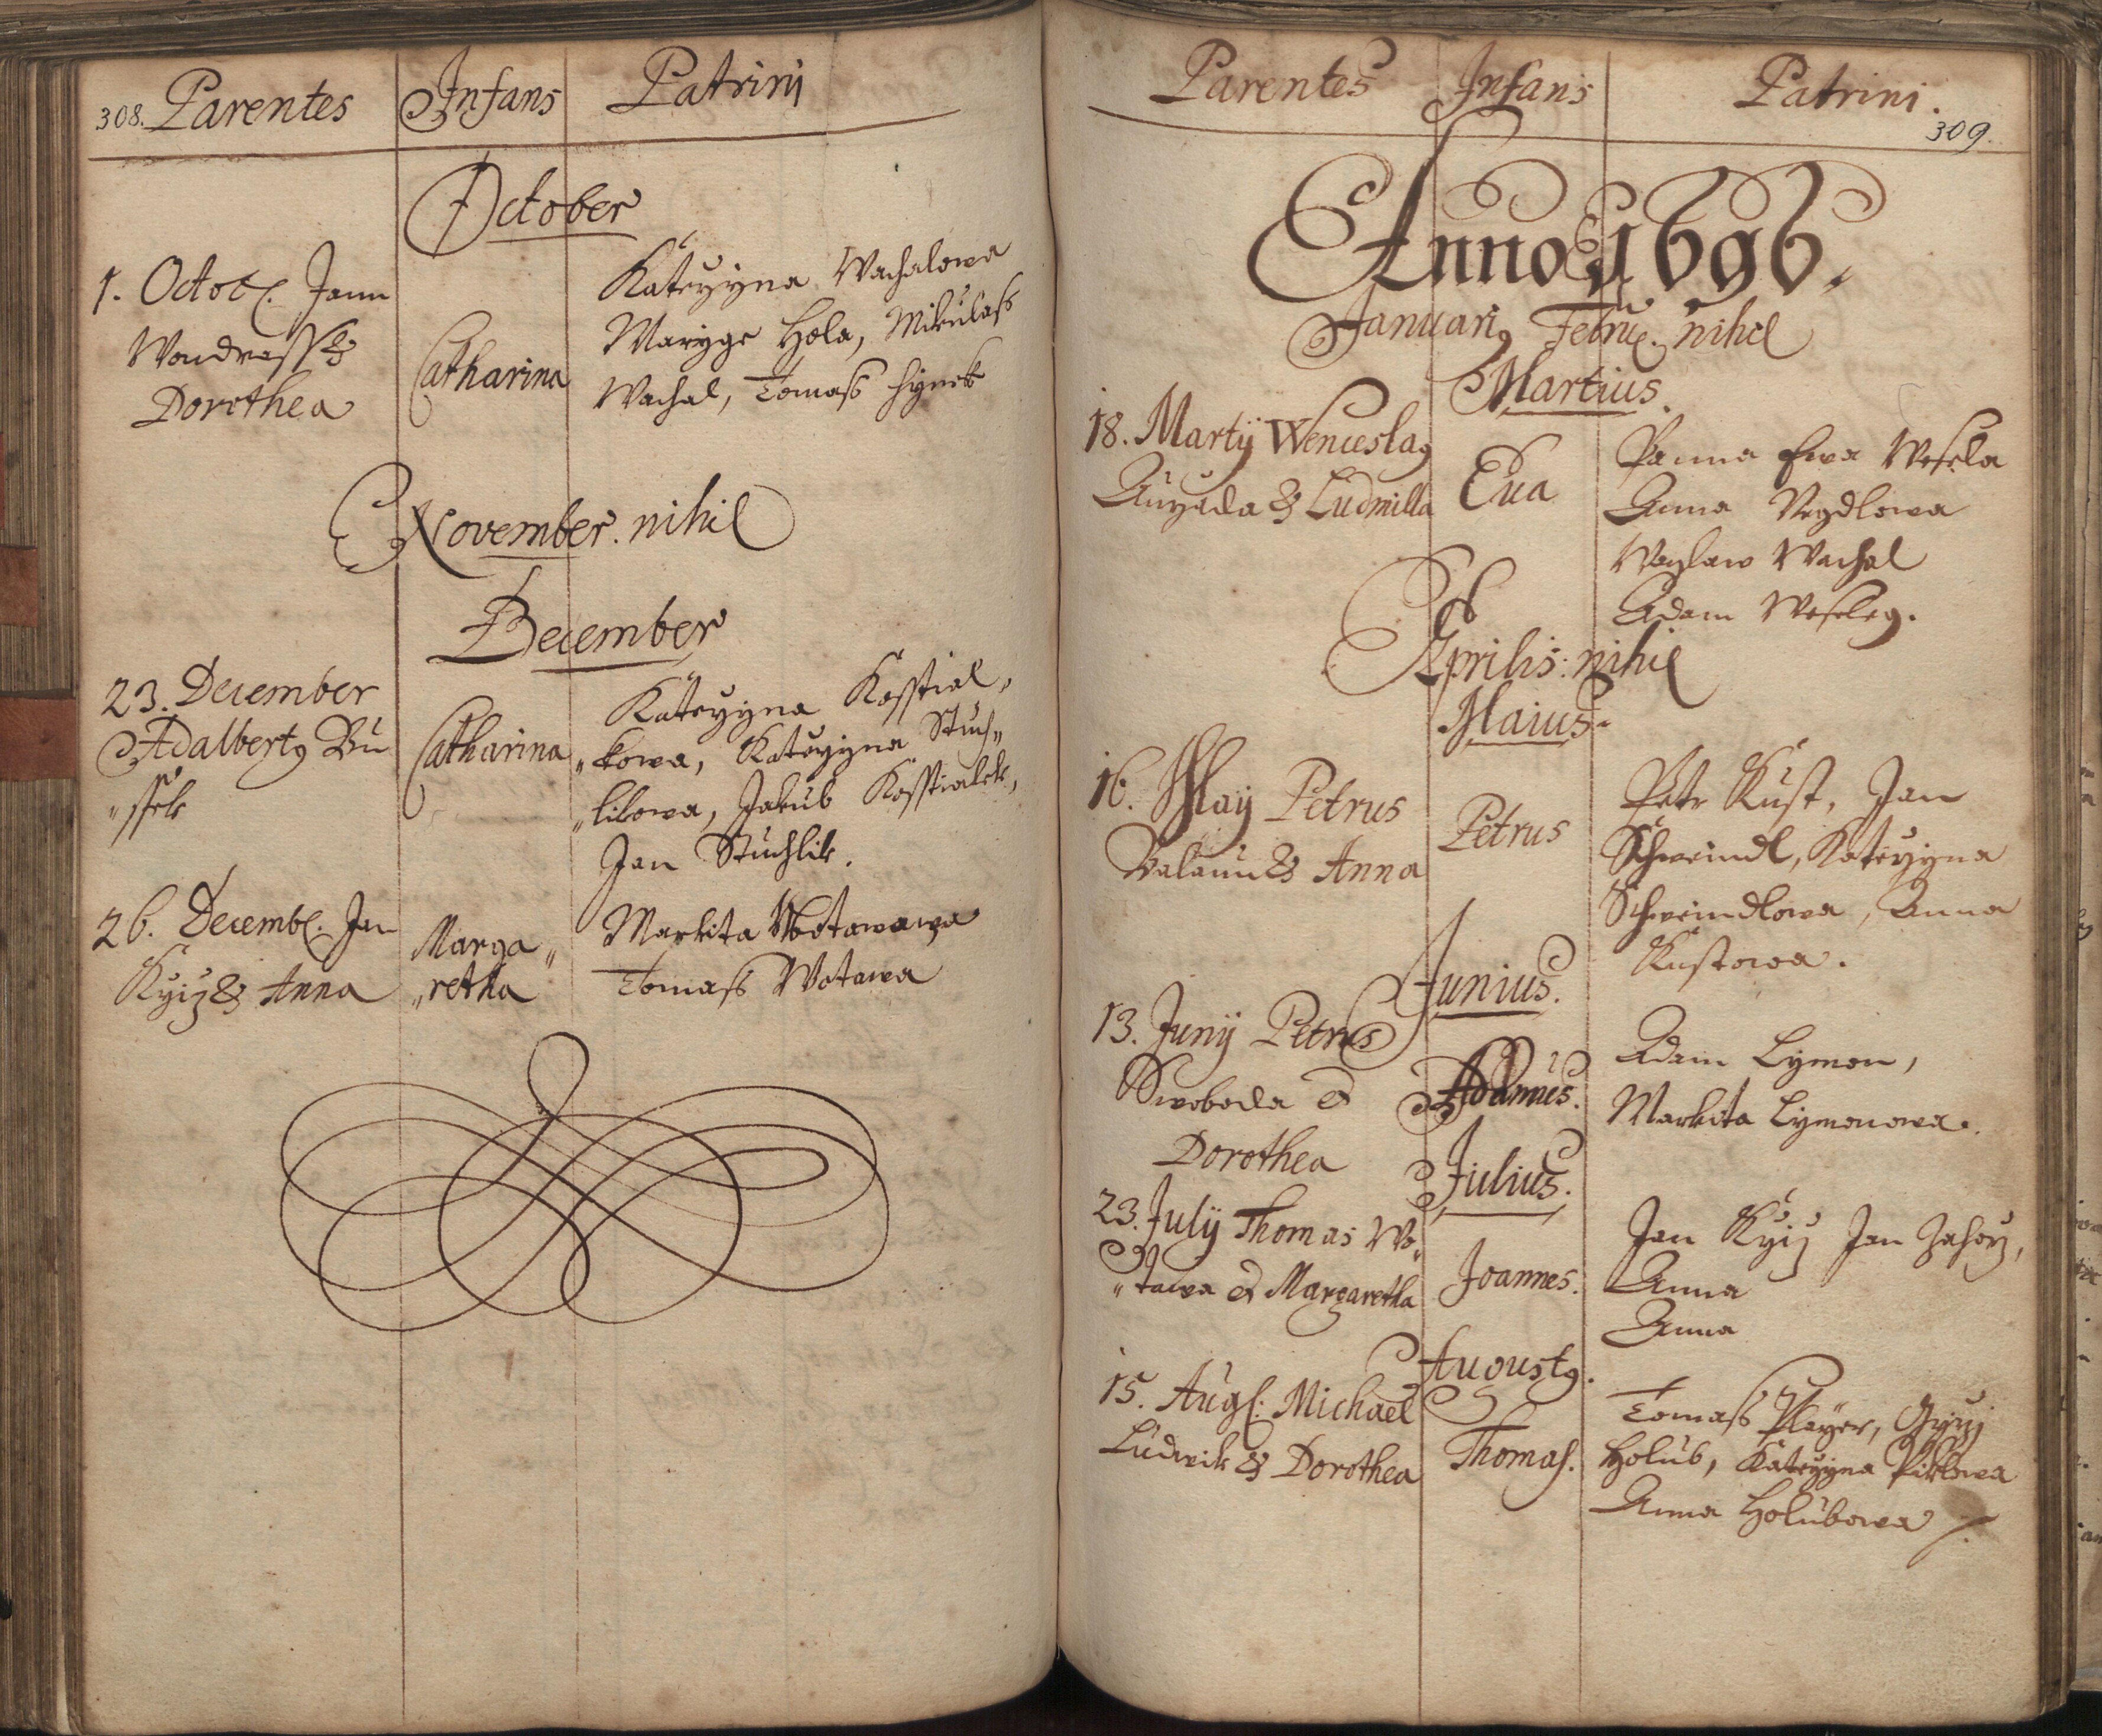 308. Parentes Infans Patrinj
October
1. Octob. Jann
Wondrass &
Dorothea
Catharina
Katerzyna Wachalowa
Maryge Hola, Mikulass
Wachal, Tomass Hynek
November. nihil
December
23. December
Adalbertq Bu
"ssek
Catharina
Katerzyna Kosstial"
"kowa, Katerzyna Stuch"
"likowa, Jakub Kosstialek,
Jan Stuchlik.
26. Decemb. Jan
& Anna
Marga"
"retha
Markita Wotawawa
Tomass Wotawa
Parentes Infans Patrini.
309.
Anno 1696.
Januariq Febru. nihil
Martius.
18. Martij Wenceslaq
& Ludmilla
Eua
Panna Ewa Wesela
Anna
Waczlaw Wachal
Adam Weseleg.
Aprilis: nihil
Maius.
16. Maij Petrus
& Anna
Petrus
Petr Kust, Jan
Schweindl, Katerzyna
Schweindlowa, Anna
Kustowa.
Junius.
13. Junij Petrus
Swoboda et
Dorothea
Adamus.
Adam Lymon,
Markita Lymonowa.
Julius.
23. Julij Thomas Wo"
"tawa et Margaretha
Joannes.
Jan Jan
Anna
Anna
Augustq.
15. Aug: Michael
Ludwik & Dorothea
Thomas.
Tomass Player,
Holub, Katerzyna
Anna Holubowa